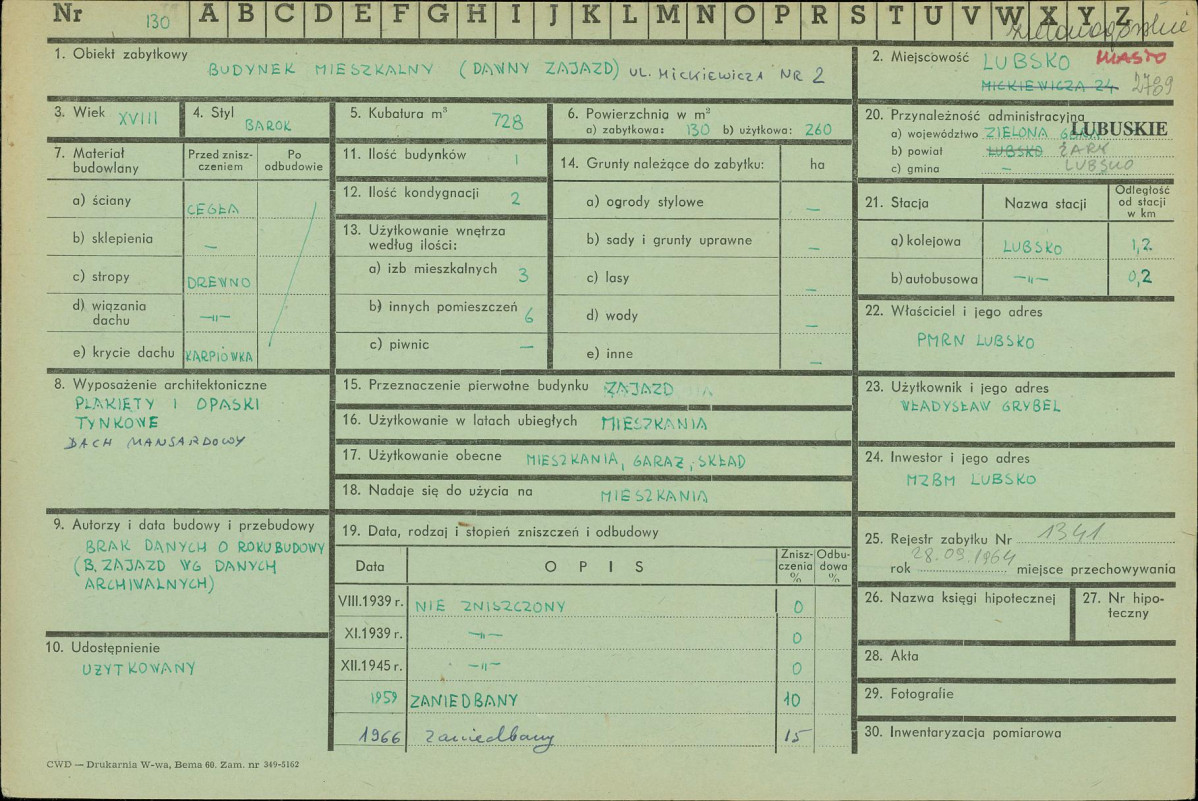 Nr 130 A B C D E F G H I J K L M N O P R S T U V W X Y Z
zielonogórskie
1. Obiekt zabytkowy
BUDYNEK MIESZKALNY (DAWNY ZAJAZD) UL. MICKIEWICZA NR 2
2. Miejscowość LUBSKO MIASTO
MICKIEWICZA 24
3. Wiek XVIII
4. Styl
BAROK
5. Kubatura m³ 728
6. Powierzchnia w m²
a) zabytkowa: 130 b) użytkowa: 260
20. Przynależność administracyjna
a) województwo ZIELONA GÓRA LUBUSKIE
b) powiat LUBSKO ŻARY
c) gmina — LUBSKO
7. Materiał budowlany
Przed zniszczeniem
Po odbudowie
a) ściany CEGŁA
b) sklepienia —
c) stropy DREWNO
d) wiązania dachu —„—
e) krycie dachu KARPIÓWKA
11. Ilość budynków 1
12. Ilość kondygnacji 2
13. Użytkowanie wnętrza
według ilości:
a) izb mieszkalnych 3
b) innych pomieszczeń 6
c) piwnic —
14. Grunty należące do zabytku: ha
a) ogrody stylowe —
b) sady i grunty uprawne —
c) lasy —
d) wody —
e) inne —
21. Stacja Nazwa stacji Odległość od stacji w km
a) kolejowa LUBSKO 1,2
b) autobusowa —„— 0,2
22. Właściciel i jego adres
PMRN LUBSKO
8. Wyposażenie architektoniczne
PLAKIETY I OPASKI
TYNKOWE
DACH MANSARDOWY
15. Przeznaczenie pierwotne budynku ZAJAZD
16. Użytkowanie w latach ubiegłych MIESZKANIA
17. Użytkowanie obecne MIESZKANIA, GARAŻ, SKŁAD
18. Nadaje się do użycia na MIESZKANIA
23. Użytkownik i jego adres
WŁADYSŁAW GRYBEL
24. Inwestor i jego adres
MZBM LUBSKO
9. Autorzy i data budowy i przebudowy
BRAK DANYCH O ROKU BUDOWY
(B. ZAJAZD WG DANYCH
ARCHIWALNYCH)
10. Udostępnienie
UŻYTKOWANY
19. Data, rodzaj i stopień zniszczeń i odbudowy
Data OPIS Zniszczenia % Odbudowa %
VIII.1939 r. NIE ZNISZCZONY 0
XI.1939 r. —„— 0
XII.1945 r. —„— 0
1959 ZANIEDBANY 10
1966 zaniedbany 15
25. Rejestr zabytku Nr 1341
rok 28.09.1964 miejsce przechowywania
26. Nazwa księgi hipotecznej
27. Nr hipoteczny
28. Akta
29. Fotografie
30. Inwentaryzacja pomiarowa
CWD — Drukarnia W-wa, Bema 60. Zam. nr 349-5162